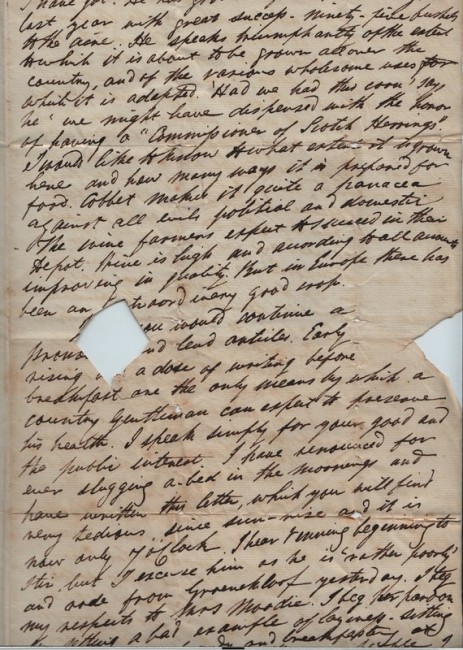 last year with great success - ninety-five bushels
to the acre. He speaks triumphantly of the extent
to which it is about to be grown all over the
country, and of the various wholesome uses for
which it is adapted. Had we had this corn, says
he "we might have dispensed with the honor
of having a "Commissioner of Scotch Herrings".
I would like to know to what extent it is grown
here and how many ways it is prepared for
food. Cobbet makes it quite a panacea
against all evils political and domestic
The wine farmers expect to succeed in their
Depot. Wine is high and according to all accounts
improving in quality. But in Europe there has
been an extraordinary good crop.
you would continue a
and lend articles. Early
rising a dose of writing before
breakfast are the only means by which a
country Gentleman can expect to preserve
his health. I speak simply for your good and
the public interest. I have renounced for
ever slugging a-bed in the mornings and
have written this letter, which you will find
very tedious, since sun-rise and it is
now only 7 o'Clock. I hear beginning to
stir but I excuse him as he is "rather poorly"
and rode from Groenekloof yesterday. I beg
my respects to Mrs Moodie. I beg her pardon
a bad example of laziness - sitting
and breakfasting at